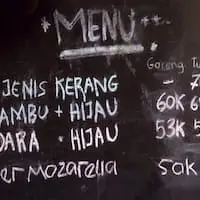 MENU
Goreng Tu
JENIS KERANG 7
AMBU + HIJAU 60K 6
DARA · HIJAU 53K 5
er mozarella 50K